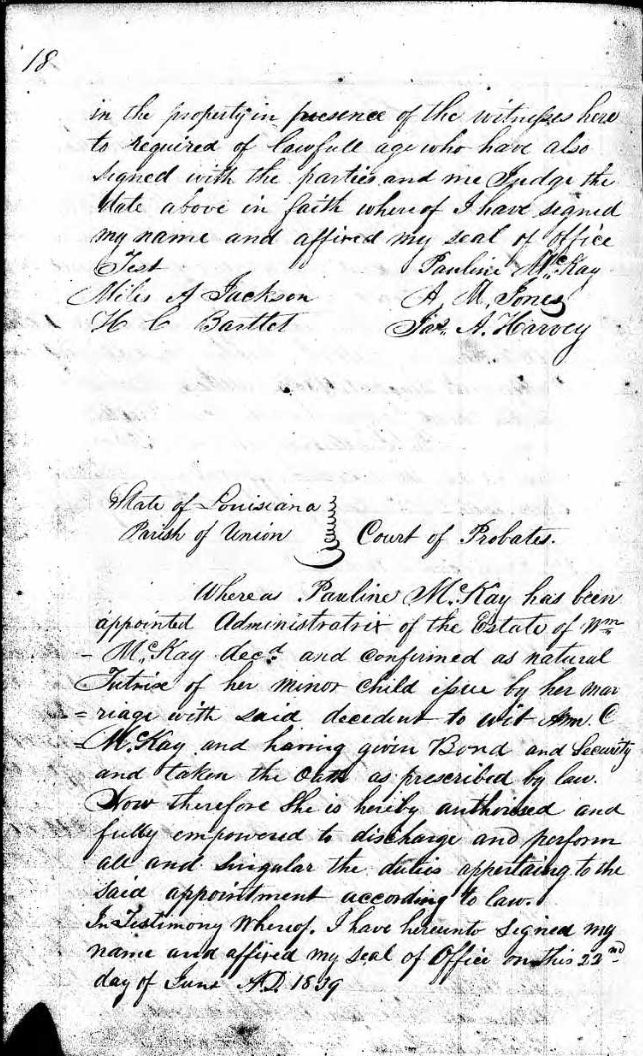 18
in the property in presence of the witnesses here
to required of lawfull age who have also
signed with the parties and me Judge the
date above in faith whereof I have signed
my name and affixed my seal of office
Test Pauline McKay
Miles A Jackson A, M, Jones
H C Bartlet Jas. A. Harvey
State of Louisiana
Parish of Union Court of Probates.
Whereas Pauline McKay has been
appointed Administratrix of the Estate of Wm
- McKay decd. and confirmed as natural
Tutrix of her minor child issue by her mar
= riage with said decedent to wit Wm. C
- McKay and having given Bond and Security
and taken the Oath as prescribed by law.
Now therefore She is hereby authorised and
fully empowered to discharge and perform
all and singular the duties appertaing to the
said appointment according to law.
In Testimony Whereof. I have hereunto signed my
name and affixed my seal of Office on this 22nd
day of June A.D. 1839